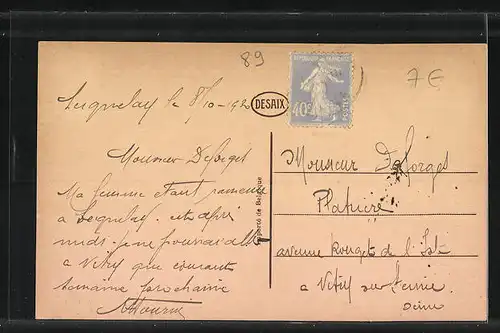 89
7 €
Seignelay le 8/10-192
DESAIX
REPUBLIQUE FRANCAISE
40c
POSTES
Monsieur Deforges
Ma femme étant ramenée
a Seignelay. cet après
midi. je ne pourrai aller
a Vitry que courant
semaine prochaine
Monsieur Deforges
Platrière
avenue Rouget de l'Isle
a Vitry sur Seine
Seine